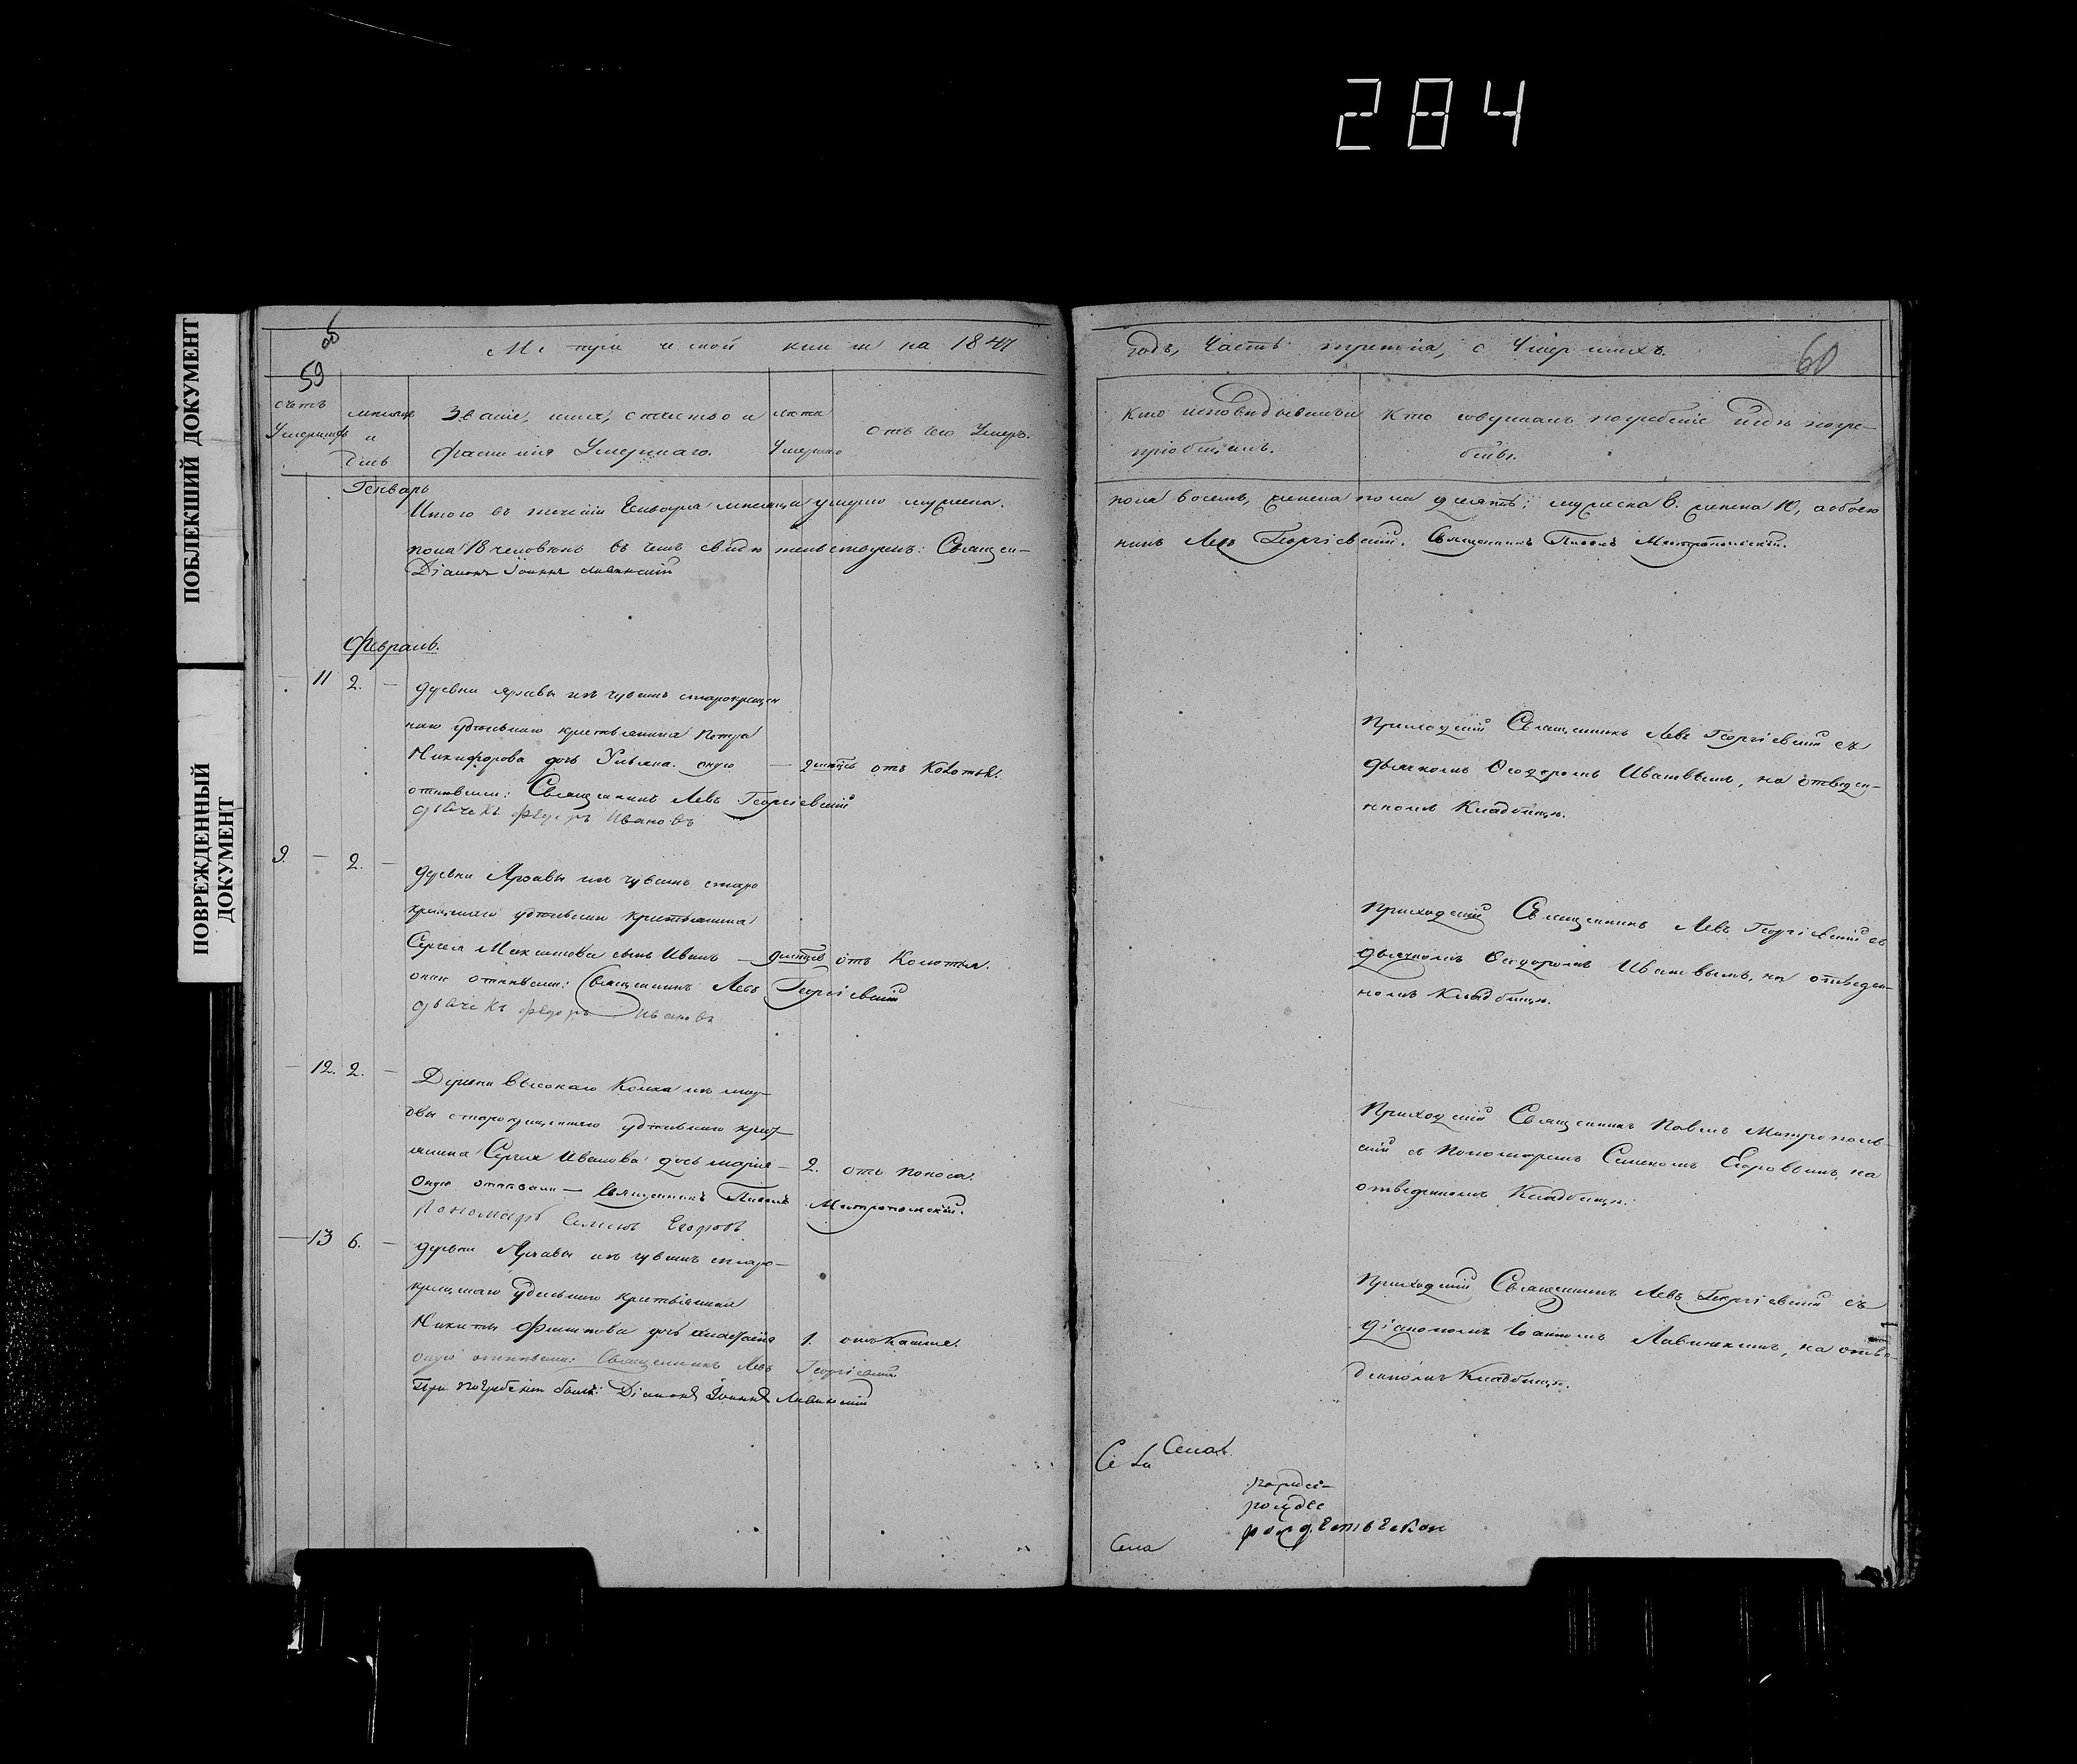 284
ПОБЛЕКШИЙ ДОКУМЕНТ
ПОВРЕЖДЕННЫЙ
ДОКУМЕНТ
59 об
Метрической книги на 1847
счетъ
Умершихъ
мѣсяцъ
и
день
Званіе, имя, отчество и
фамилія Умершаго.
лѣта
Умершаго
отъ чего Умеръ.
Генварь
Итого въ теченіи Генваря мѣсяца умерло мужеска.
пола 18 человѣкъ въ чемъ свидѣтельствуемъ: Священ-
Діаконъ Іоаннъ
Февраль.
11 2. деревни изъ чувашъ старокрещен
наго удѣльнаго крестьянина Петра
Никифорова дочь Ульяна. оную
отпѣвали: Священникъ Левъ Георгіевскій
дьячекъ федоръ Ивановъ
отъ Колотья.
9. 2. деревни изъ чувашъ старо
крещенаго удѣльнаго крестьянина
Сергея Максимова сынъ Иванъ
отъ Колотья.
онаго отпѣвали: Священникъ Левъ Георгіевскій
дьячекъ федоръ Ивановъ
12. 2. Деревни Высокаго Колка изъ мор-
двы старокрещенаго удѣльнаго крест-
янина Сергея Иванова дочь марія 2. отъ поноса.
Оную отпѣвали Священникъ Павелъ Митропольскій.
Пономарь Семенъ Егоровъ
13 6. деревни изъ чувашъ старо-
крещенаго Удельнаго крестьянина
Никиты Филипова дочь 1. отъ кашля.
оную отпѣвали: Священникъ Левъ Георгіевскій
При погребеніи былъ: Діаконъ Іоаннъ
годъ, Часть третія, о Умершихъ.
60
кто исповѣдывалъ и
пріобщалъ.
Кто совершалъ погребеніе и гдѣ погре-
бены.
пола восемь, женска пола десять; мужеска 8. женска 10, а обоего
никъ Левъ Георгіевскій. Священникъ Павелъ Митропольскій.
Приходскій Священникъ Левъ Георгіевскій съ
дьячкомъ Ѳеодоромъ Ивановымъ, на отведен-
номъ Кладбищѣ.
Приходскій Священникъ Левъ Георгіевскій съ
дьячкомъ Ѳеодоромъ Ивановымъ, на отведен-
номъ Кладбищѣ.
Приходскій Священникъ Павелъ Митрополь-
скій съ Пономаремъ Семеномъ Егоровымъ, на
отведенномъ Кладбищѣ.
Приходскій Священникъ Левъ Георгіевскій съ
діакономъ Іоанномъ на отве-
денномъ Кладбищѣ.
Села